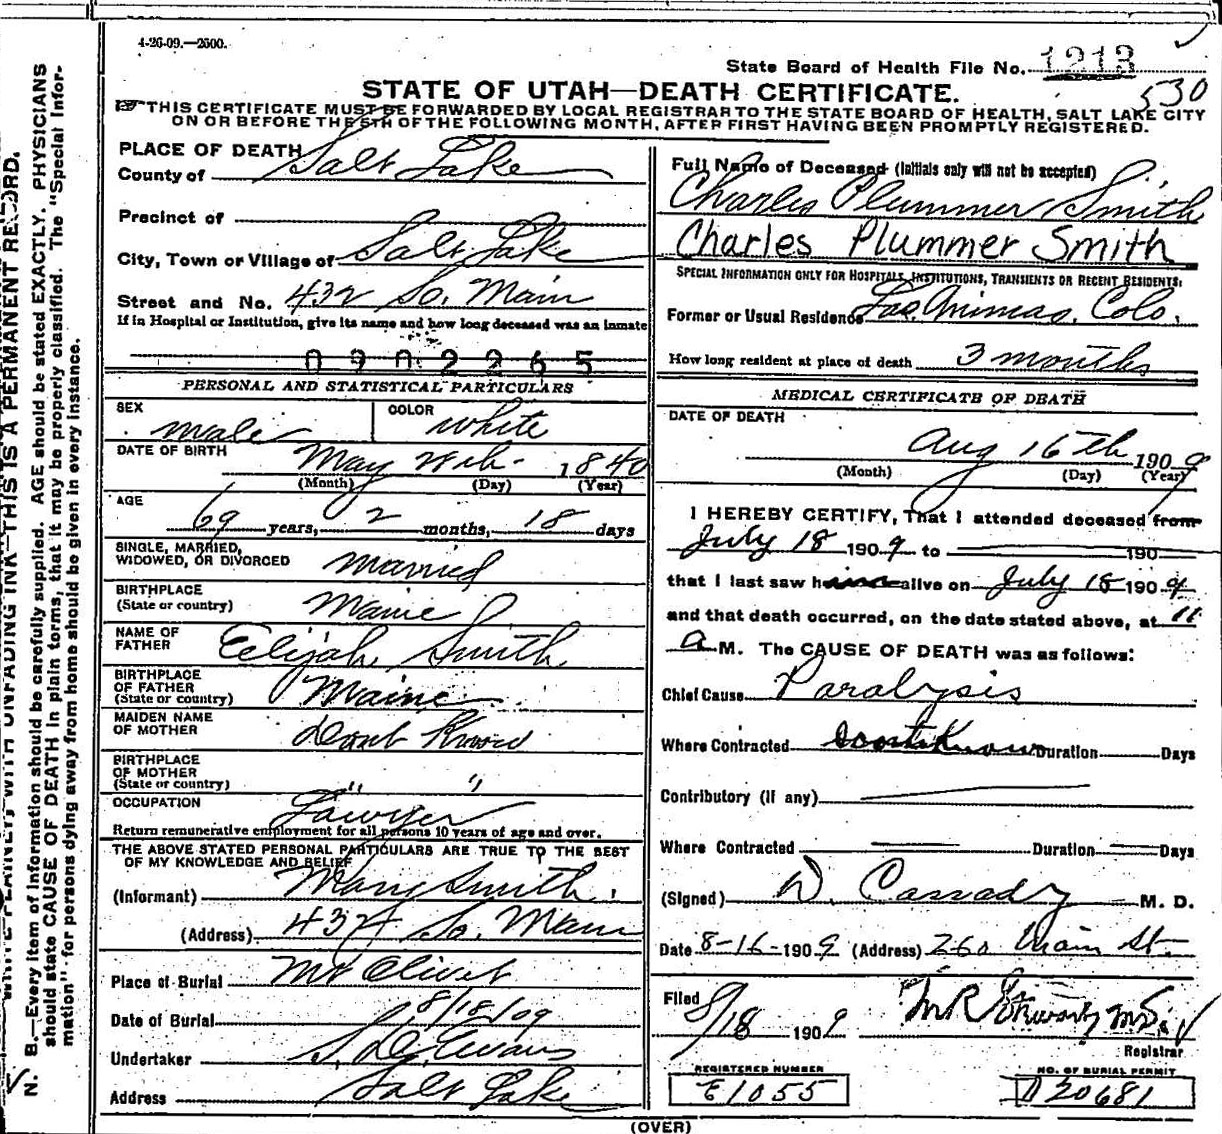 4-26-09.—2500.
State Board of Health File No. 1213
530
STATE OF UTAH—DEATH CERTIFICATE.
THIS CERTIFICATE MUST BE FORWARDED BY LOCAL REGISTRAR TO THE STATE BOARD OF HEALTH, SALT LAKE CITY
ON OR BEFORE THE 5TH OF THE FOLLOWING MONTH, AFTER FIRST HAVING BEEN PROMPTLY REGISTERED.
PLACE OF DEATH
County of Salt Lake
Precinct of
City, Town or Village of Salt Lake
Street and No. 432 So. Main
If in Hospital or Institution, give its name and how long deceased was an inmate
0902265
PERSONAL AND STATISTICAL PARTICULARS
SEX male COLOR white
DATE OF BIRTH May 1840
(Month) (Day) (Year)
AGE 69 years, 2 months, 18 days
SINGLE, MARRIED,
WIDOWED, OR DIVORCED Married
BIRTHPLACE
(State or country) Maine
NAME OF
FATHER Elijah Smith
BIRTHPLACE
OF FATHER
(State or country) Maine
MAIDEN NAME
OF MOTHER Dont Know
BIRTHPLACE
OF MOTHER
(State or country) " "
OCCUPATION Lawyer
Return remunerative employment for all persons 10 years of age and over.
THE ABOVE STATED PERSONAL PARTICULARS ARE TRUE TO THE BEST
OF MY KNOWLEDGE AND BELIEF
(Informant) Mary Smith
(Address) 432 So. Main
Place of Burial Mt Olivet
Date of Burial 8/18/09
Undertaker S. D. Evans
Address Salt Lake
Full Name of Deceased (Initials only will not be accepted)
Charles Plummer Smith
Charles Plummer Smith
SPECIAL INFORMATION ONLY FOR HOSPITALS, INSTITUTIONS, TRANSIENTS OR RECENT RESIDENTS:
Former or Usual Residence Las Animas, Colo.
How long resident at place of death 3 months
MEDICAL CERTIFICATE OF DEATH
DATE OF DEATH
Aug 16th 1909
(Month) (Day) (Year)
I HEREBY CERTIFY, That I attended deceased from
July 18 1909 to 190
that I last saw him alive on July 18 1909
and that death occurred, on the date stated above, at 11
a M. The CAUSE OF DEATH was as follows:
Chief Cause Paralysis
Where Contracted dont Know Duration Days
Contributory (if any)
Where Contracted Duration Days
(Signed) D. Cassady M. D.
Date 8-16-1909 (Address) 260 Main St.
Filed 8/18 1909
Registrar
REGISTERED NUMBER
E1055
NO. OF BURIAL PERMIT
D20681
(OVER)
N. B.—Every item of information should be carefully supplied. AGE should be stated EXACTLY. PHYSICIANS
should state CAUSE OF DEATH in plain terms, that it may be properly classified. The "Special Infor-
mation" for persons dying away from home should be given in every instance.
WITH UNFADING INK—THIS IS A PERMANENT RECORD.